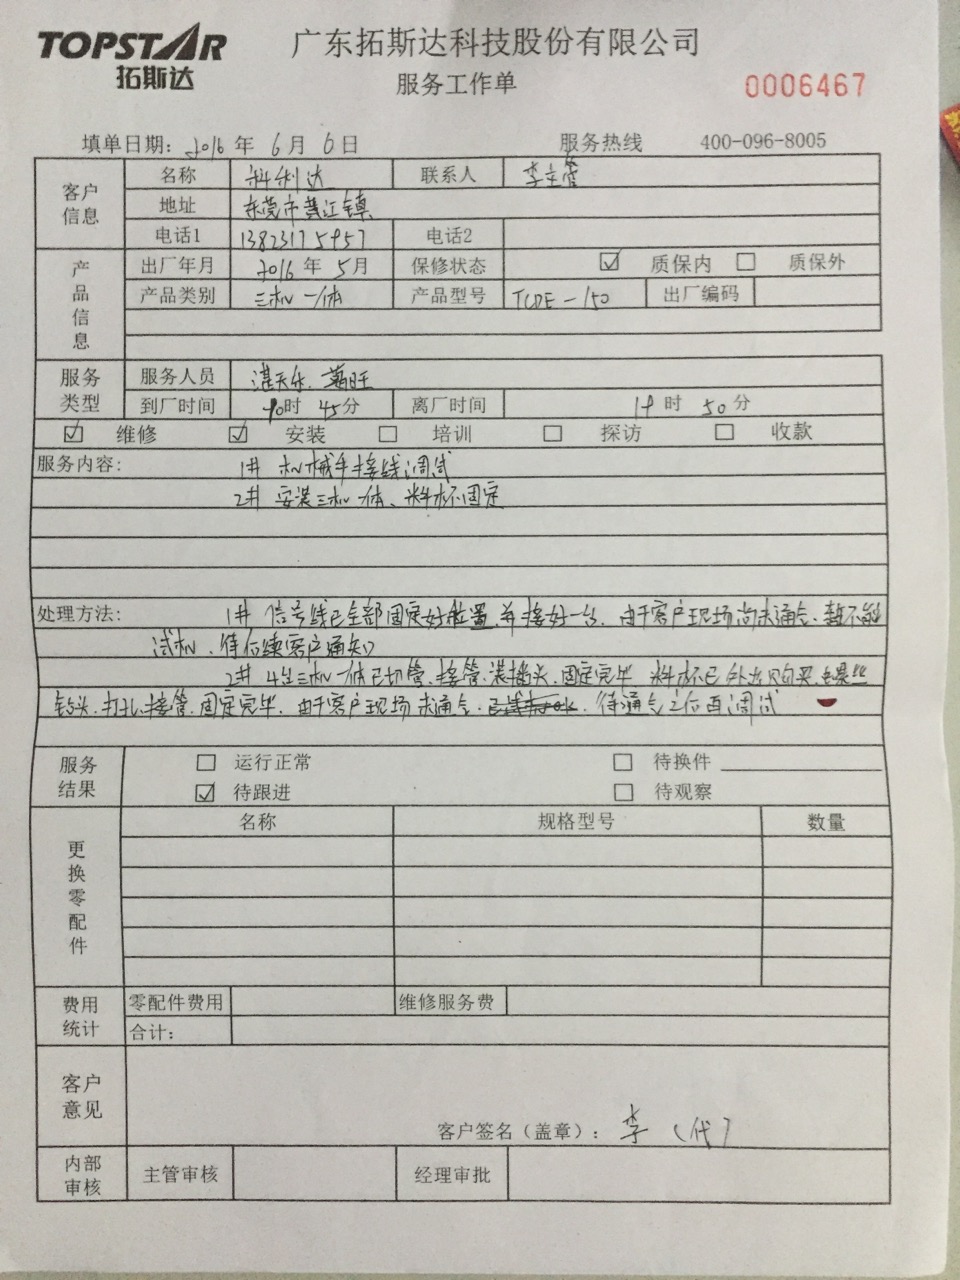 TOPSTAR
拓斯达
广东拓斯达科技股份有限公司
服务工作单
0006467
填单日期: 2016 年 6 月 6 日 服务热线 400-096-8005
客户信息 名称 科利达 联系人 李主管
地址 东莞市黄江镇
电话1 13823175957 电话2
产品信息 出厂年月 2016 年 5 月 保修状态 ☑ 质保内 □ 质保外
产品类别 三机一体 产品型号 TCDE-150 出厂编码
服务类型 服务人员 湛天乐.
到厂时间 10时 45分 离厂时间 时 50分
☑ 维修 ☑ 安装 □ 培训 □ 探访 □ 收款
服务内容: 1# 机械手接线调试
2# 安装三机一体、料杯固定
处理方法: 1# 信号线已全部固定好位置.并接好一台.由于客户现场尚未通气.暂不能
试机.待后续客户通知
2# 4台三机一体已切管.接管.装插头.固定完毕 料杯已外出购买
钻头.打孔.接管.固定完毕.由于客户现场未通气. 待通气之后再调试
服务结果 □ 运行正常 □ 待换件
☑ 待跟进 □ 待观察
更换零配件 名称 规格型号 数量
费用统计 零配件费用 维修服务费
合计:
客户意见
客户签名（盖章）: 李（代）
内部审核 主管审核 经理审批